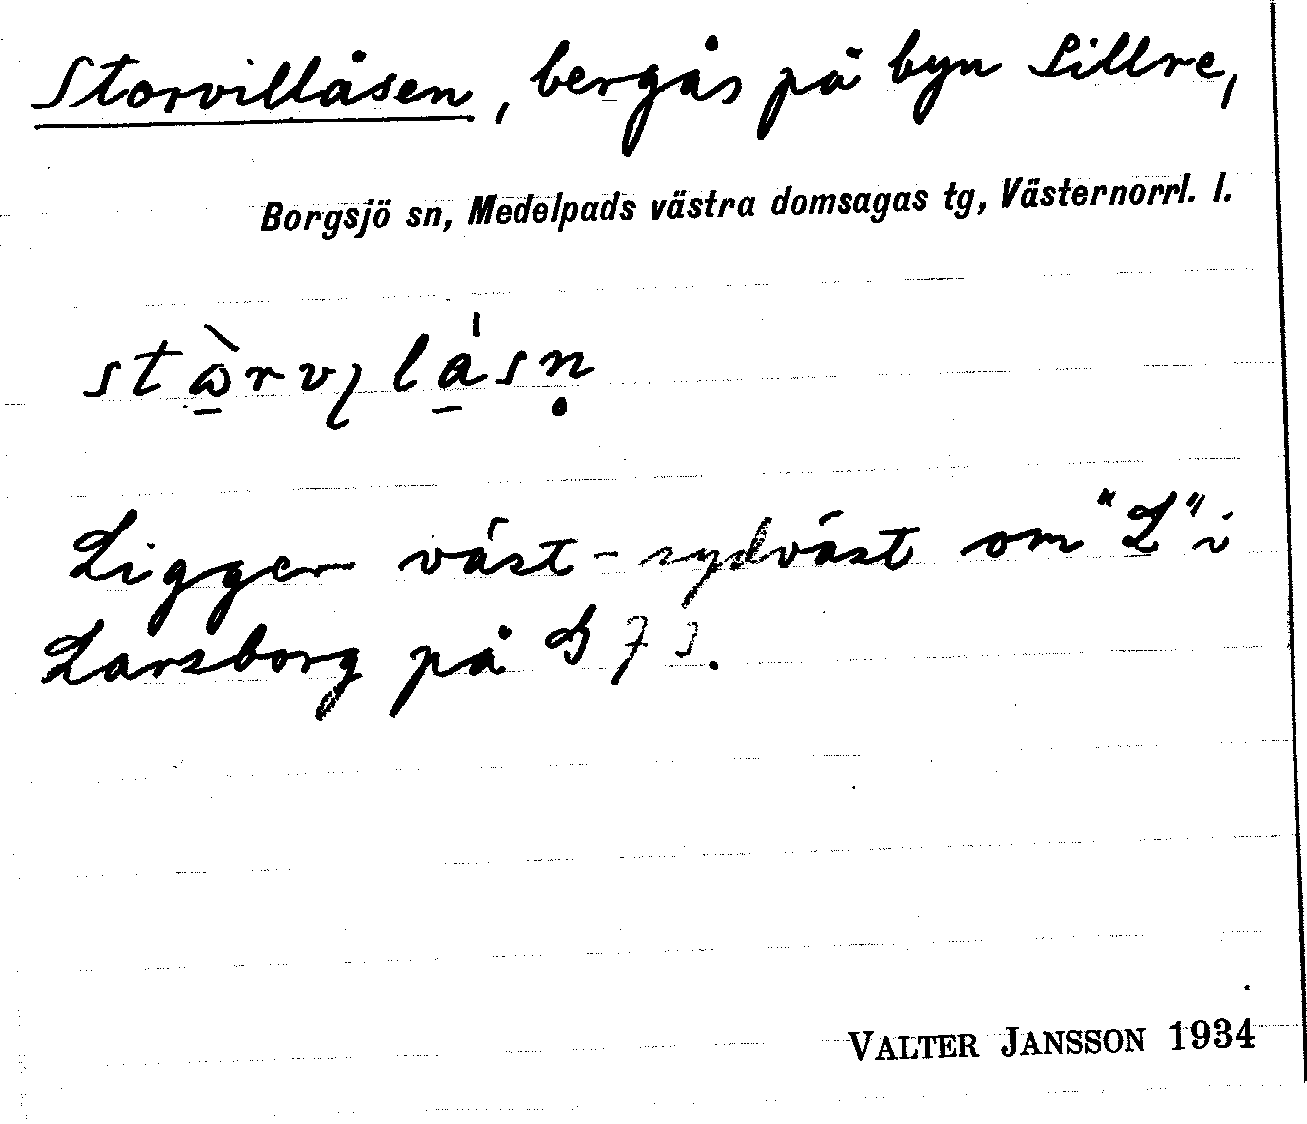 Storvillåsen, bergås på byn Lillre,
Borgsjö sn, Medelpads västra domsagas tg, Västernorrl. l.
Ligger väst-sydväst om "L" i
Larsborg på
VALTER JANSSON 1934